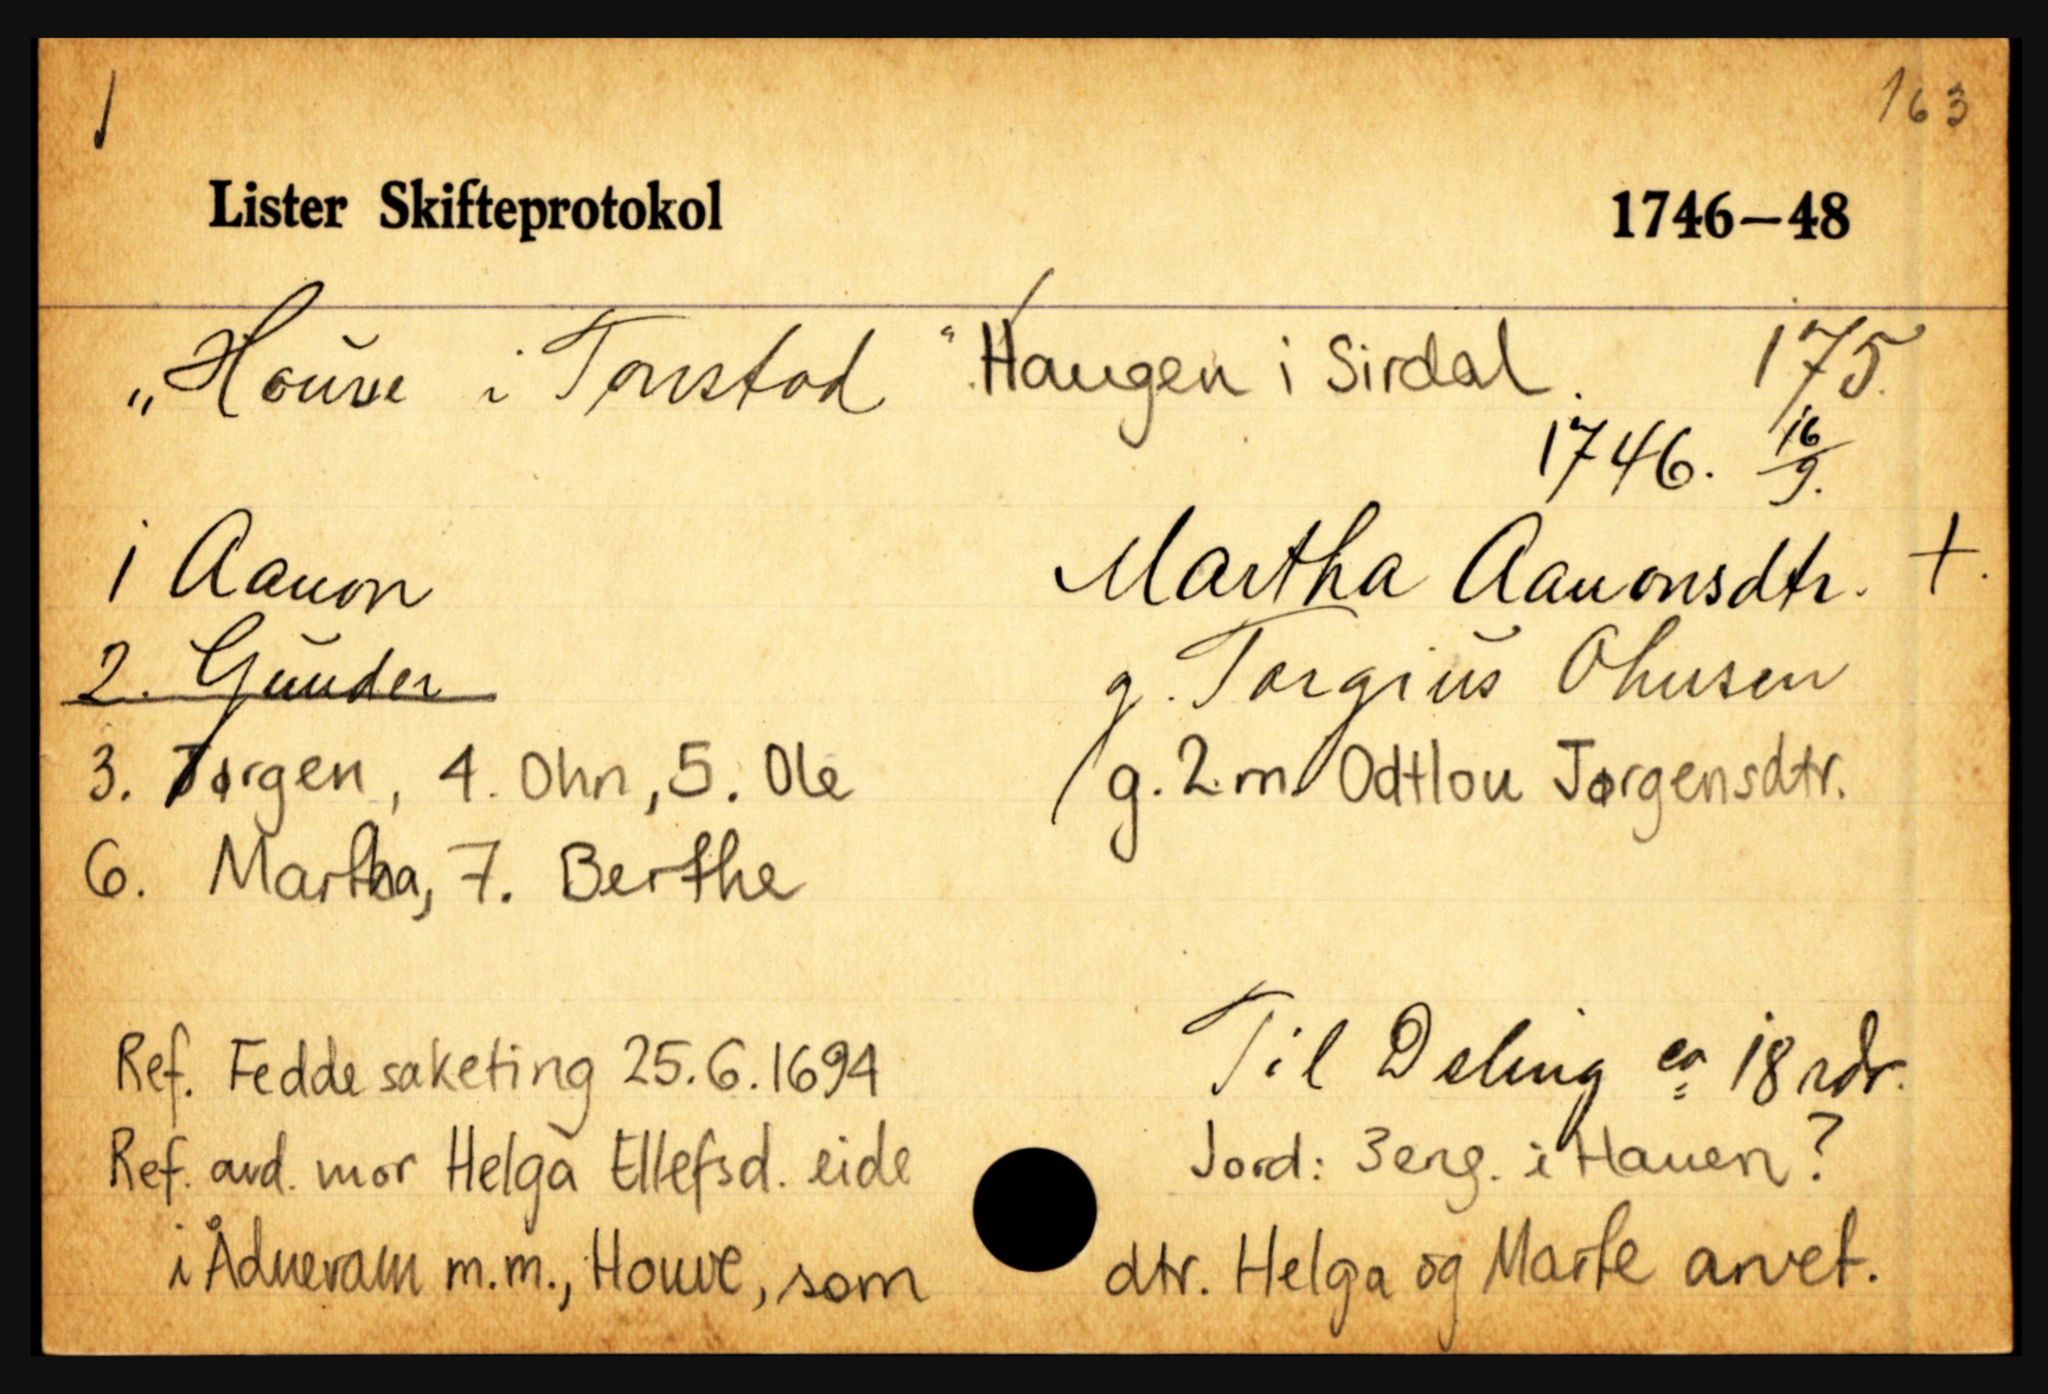 163
Lister Skifteprotokol 1746–48
„Houve i Tonstad" Haugen i Sirdal. 175.
1746. 16/9.
1 Aanon Martha Aanonsdtr. +.
2. Gunder g. Torgius Ohnsen
3. Jørgen, 4. Ohn, 5. Ole g. 2. m. Odtlou Jørgensdtr.
6. Martha, 7. Berthe
Ref. Feddesaketing 25.6.1694 Til Deling ca 18 rdr.
Ref. avd. mor Helga Ellefsd. eide Jord: 3 eng. i Hauen?
i Ådneram m.m., Houve, som dtr. Helga og Marte arvet.